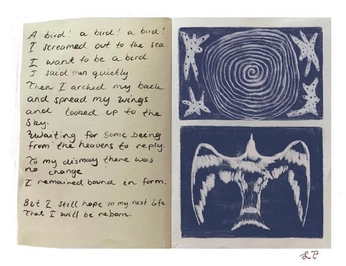 A bird! a bird! a bird!
I screamed out to the sea
I want to be a bird
I said then quietly
Then I arched my back
and spread my wings
and looked up to the
Sky.
Waiting for some being
from the heavens to reply.
To my dismay there was
no change
I remained bound in form.
But I still hope in my next life
That I will be reborn.